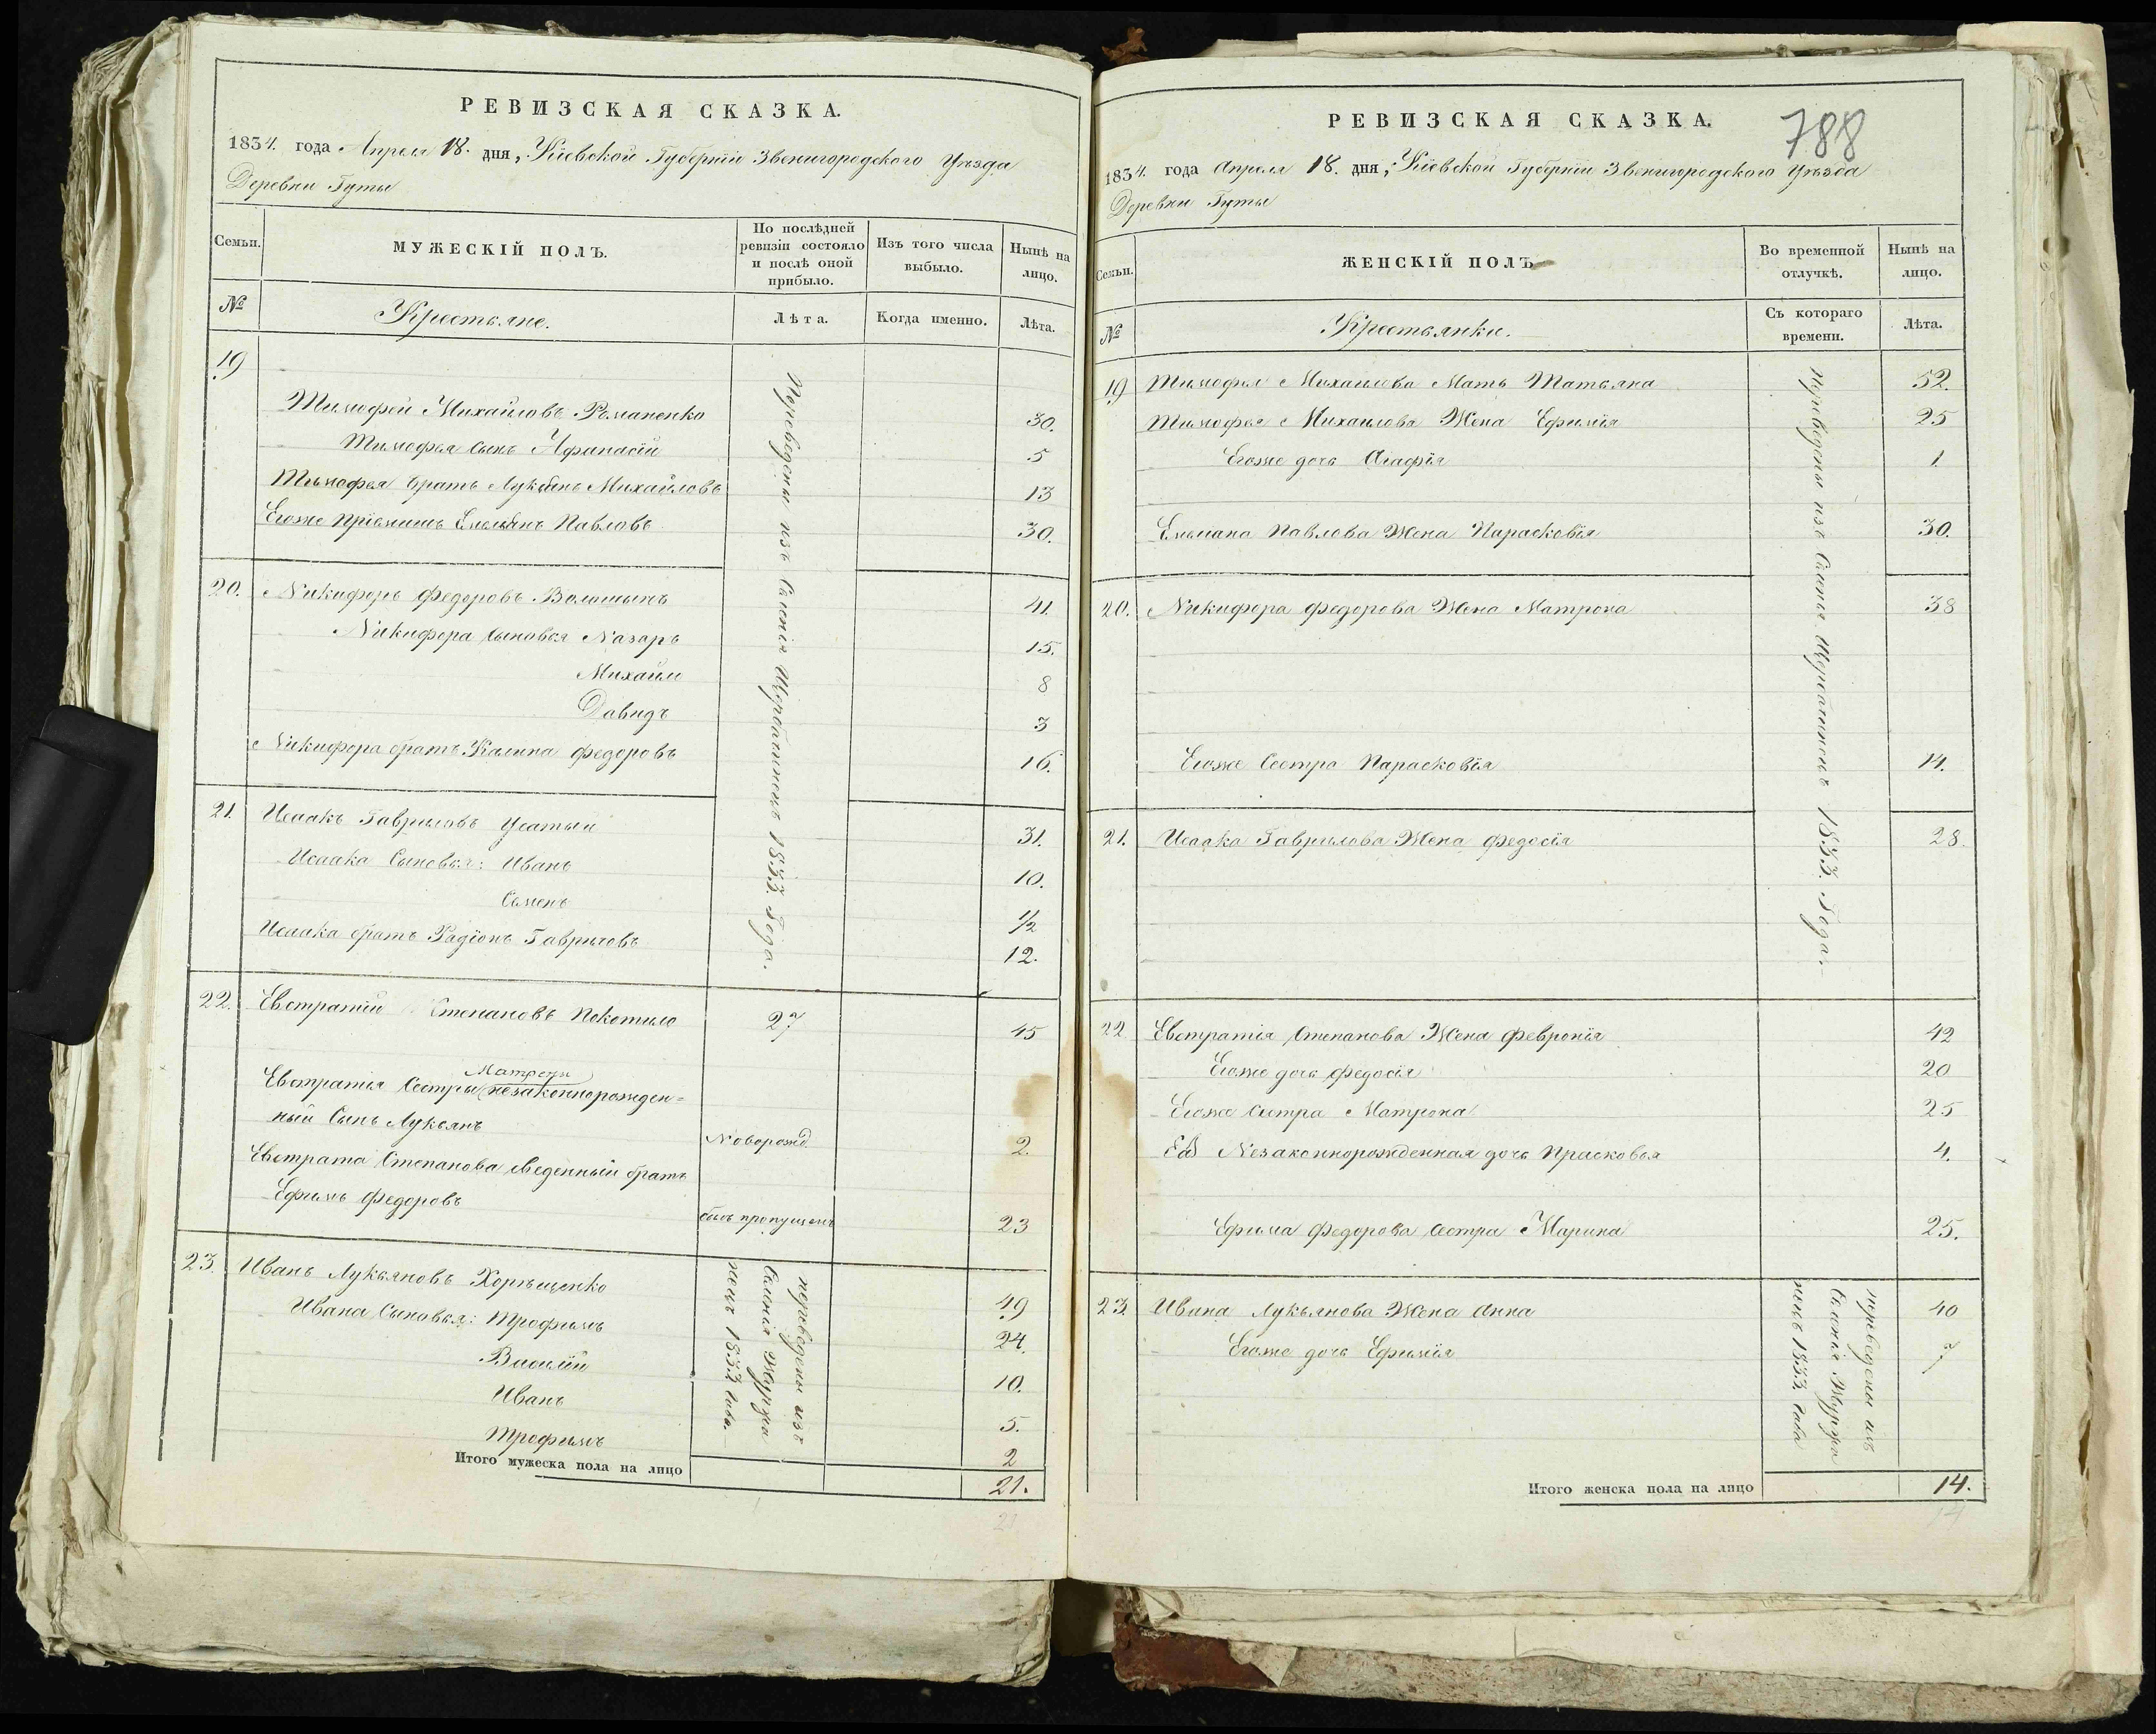 РЕВИЗСКАЯ СКАЗКА.
1834. года Апреля 18. дня, Кіевской Губерніи Звенигородского Уѣзда
Деревни Гуты
Семьи.
МУЖЕСКІЙ ПОЛЪ.
По послѣдней ревизіи состояло и послѣ оной прибыло.
Изъ того числа выбыло.
Нынѣ на лицо.
№
Крестьяне.
Лѣта.
Когда именно.
Лѣта.
Переведены изъ Селенія 1833. Года.
19
Тимофей Михайловъ Романенко 30.
Тимофея сынъ Афанасій 5
Тимофея братъ Лукянъ Михайловъ 13
Егоже пріемышъ Емельянъ Павловъ 30.
20. Никифоръ Федоровъ Волошынъ 41.
Никифора сыновья Назаръ 15.
Михайло 8
Давидъ 3
Никифора братъ Калина Федоровъ 16.
21. Исаакъ Гавриловъ Усатый 31.
Исаака Сыновья: Иванъ 10.
Семенъ 1/2
Исаака братъ Радіонъ Гавриловъ 12.
22. Евстратій Степановъ Покотило 27 45
Матрены
Евстратія Сестры незаконнорожден=
ный Сынъ Лукьянъ Новорожд 2.
Евстрата Степанова сведенный братъ
Ефимъ Федоровъ былъ пропущенъ 23
23. Иванъ Лукьяновъ Хорѣщенко 49
Ивана Сыновья: Трофимъ 24.
Василій 10.
Иванъ 5.
Трофимъ 2
переведены изъ
Селенія
1833 года.
Итого мужеска пола на лицо 21.
21
788
РЕВИЗСКАЯ СКАЗКА.
1834. года Апреля 18. дня, Кіевской Губерніи Звенигородского Уѣзда
Деревни Гуты
Семьи.
ЖЕНСКІЙ ПОЛЪ
Во временной отлучкѣ.
Нынѣ на лицо.
№
Крестьянки.
Съ котораго времени.
Лѣта.
переведены изъ 1833. Года.
19 Тимофея Михаилова Мать Татьяна 52.
Тимофея Михаилова Жена Ефимія 25
Егоже дочь Агафія 1.
Емелиана Павлова Жена Парасковія 30.
20. Никифора Федорова Жена Матрона 38
Егоже Сестра Парасковія 14.
21. Исаака Гаврилова Жена Федосія 28.
22. Евстратія Степанова Жена Февронія 42
Егоже дочь Федосія 20
Егоже Сестра Матрона 25
Ея Незаконнорожденная дочь Прасковья 4.
Ефима Федорова Сестра Марина 25.
23. Ивана Лукьянова Жена Анна 40
Егоже дочь Ефимія
переведены изъ
Селенія
1833 года
Итого женска пола на лицо 14.
14